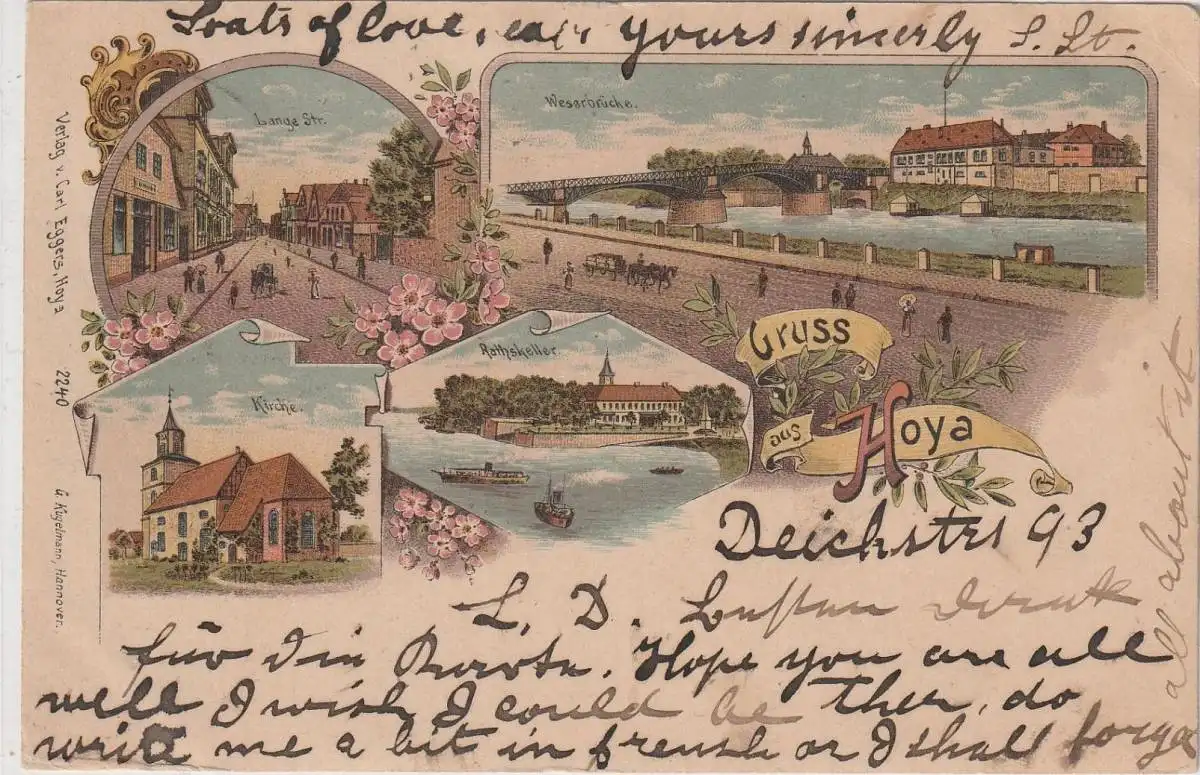 Loats of love, yours sinerly S. St.
Lange Str.
Weserbrücke.
Verlag v. Carl Eggers, Hoya 2240
G. Kugelmann, Hannover.
Kirche.
Rathskeller
Gruss
aus Hoya
Deichstr 93
L. D. Besten Dank
für die Karte. Hope you are all
well I wish I could be ther, do
write me a bit in frensh or I shall forge
all about it